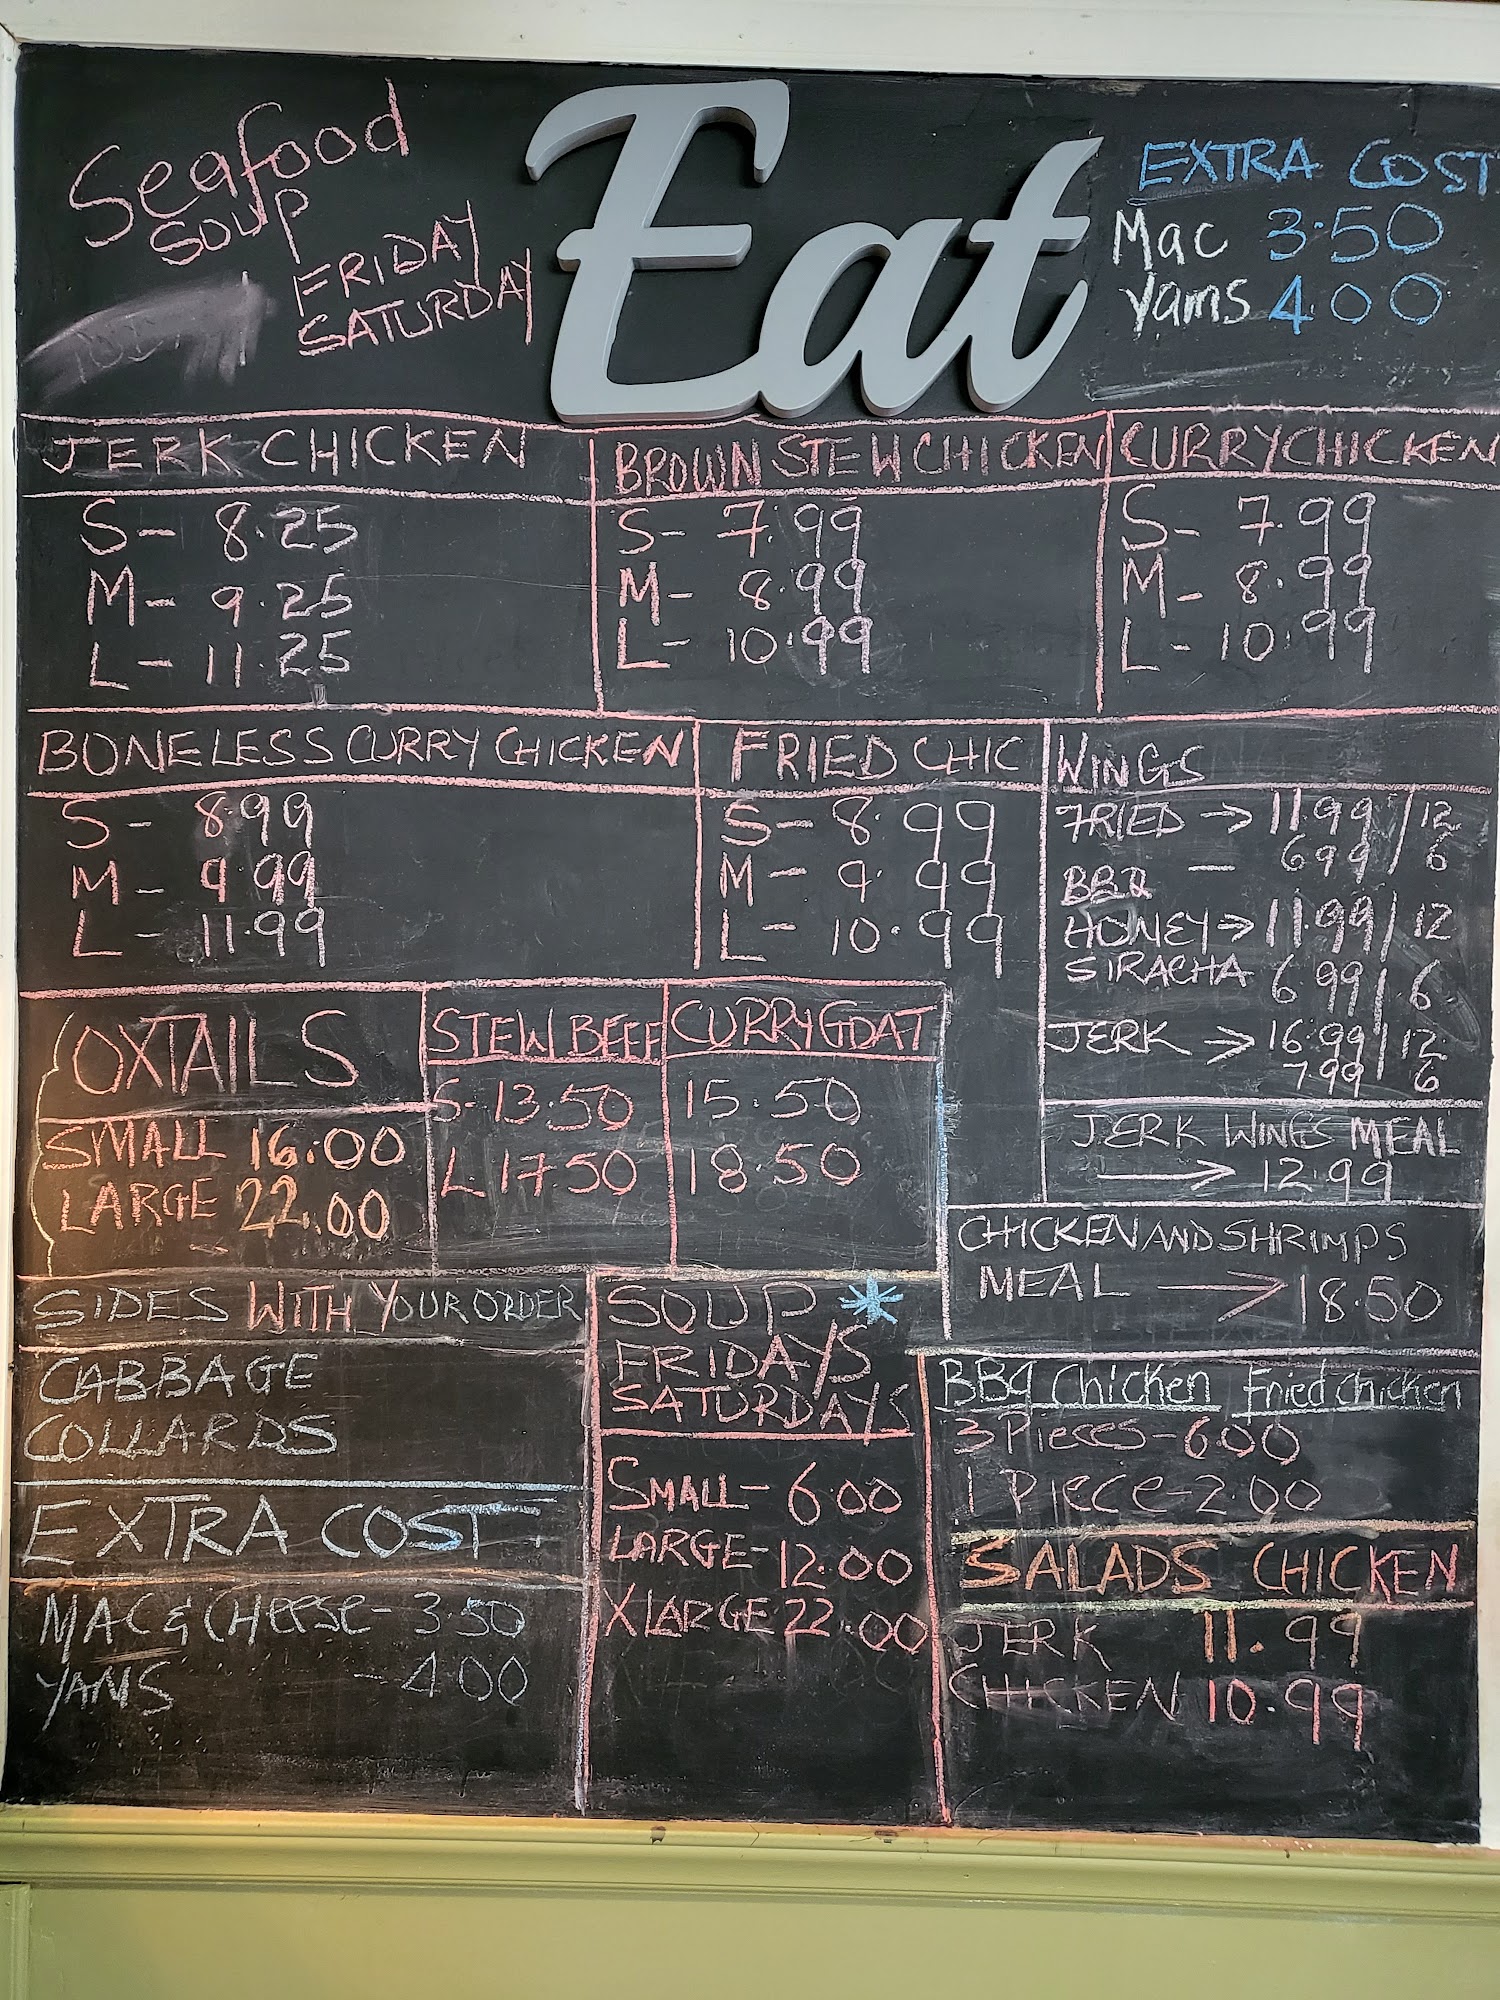 Seafood
SOUP
FRIDAY
SATURDAY
Eat
EXTRA COST
Mac 3.50
Yams 400
JERK CHICKEN
S- 8.25
M- 9.25
L- 11.25
BROWN STEW CHICKEN
S- 7.99
M- 8.99
L- 10.99
CURRY CHICKEN
S- 7.99
M- 8.99
L- 10.99
BONELESS CURRY CHICKEN
S- 8.99
M- 9.99
L- 11.99
FRIED CHIC
S- 8.99
M- 9.99
L- 10.99
WINGS
FRIED → 11.99/12
699/6
BBQ —
HONEY → 11.99/12
SIRACHA 6.99/6
JERK → 16.99/12
799/6
JERK WINGS MEAL
→ 12.99
CHICKEN AND SHRIMPS
MEAL → 18.50
OXTAILS
SMALL 16.00
LARGE 22.00
STEW BEEF
S- 13.50
L. 17.50
CURRY GOAT
15.50
18.50
SIDES WITH YOUR ORDER
CABBAGE
COLLARDS
EXTRA COST
MAC & CHEESE- 3.50
YANS -4.00
SOUP *
FRIDAYS
SATURDAYS
SMALL- 6.00
LARGE- 12.00
XLARGE 22.00
BBQ Chicken Fried chicken
3 Pieces-600
1 Piece-2.00
SALADS CHICKEN
JERK 11.99
CHICKEN 10.99